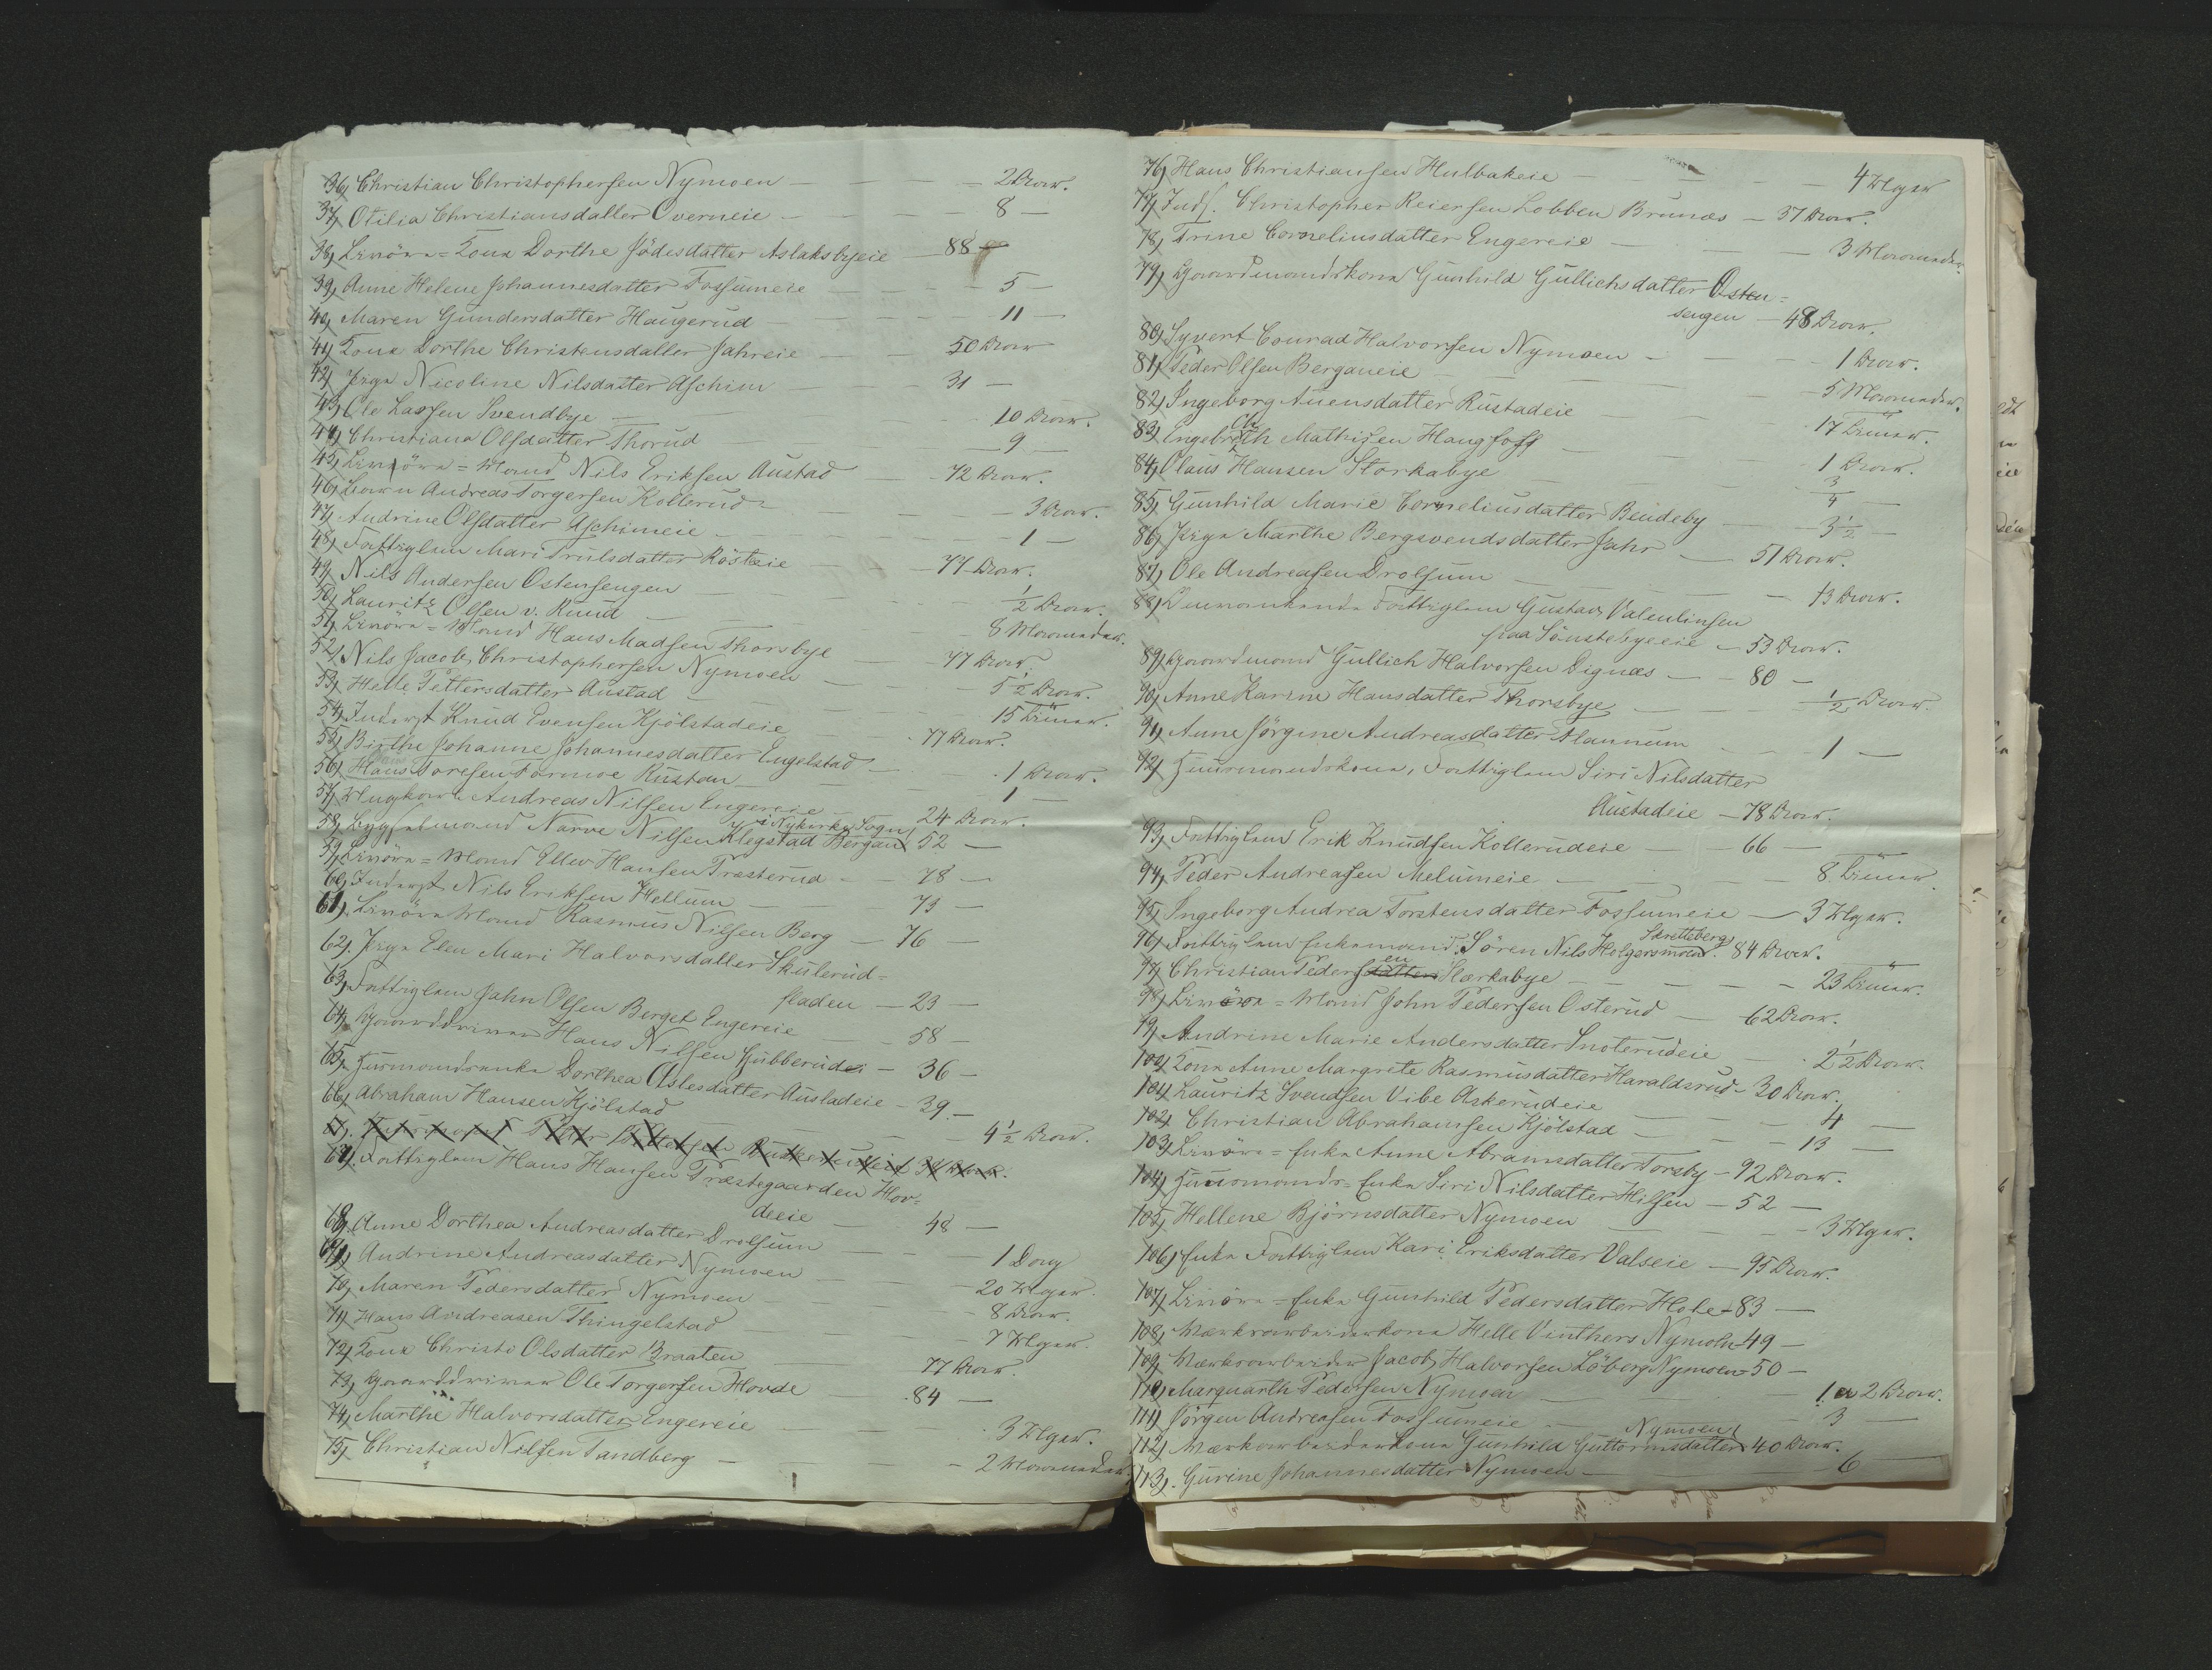 36, Christian Christophersen Nymoen — — — 2 Aar.
37, Otilia Christiansdatter Overneie — — — 8 —
38, Livöre=Kone Dorthe Jödesdatter Aslaksbyeie — 88 —
39, Anne Helene Johannesdatter Fossumeie — — — 5 —
40, Maren Gundersdatter Haugerud — — — 11 —
41, Kone Dorthe Christensdatter Jahreie — — 50 Aar
42, Pige Nicoline Nilsdatter Aschim — — 31 —
43, Ole Larssen Svendbye — — 10 Aar.
44, Christiana Olsdatter Thorud — — 9 —
45, Livöre=Mand Nils Eriksen Austad — 72 Aar.
46, Barn Andreas Torgersen Kollerud — — 3 Aar.
47, Andrine Olsdatter Aschimeie — — — 1 —
48, Fattiglem Mari Trulsdatter Rösteie — — 77 Aar.
49, Nils Andersen Ostensengen — — — ½ Aar.
50, Lauritz Olsen v. Ruud — — 8 Maaneder
51, Livöre=Mand Hans Madsen Thorsbye — 77 Aar.
52, Nils Jacob Christophersen Nymoen — — 5½ Aar.
53, Helle Pettersdatter Austad — — 15 Timer.
54, Inderst Knud Evensen Kjölstadeie — 77 Aar.
55, Birthe Johanne Johannesdatter Engelstad — 1 Aar.
56, Hans Toresen Formoe Rustan — — 1 —
57, Ungkarl Andreas Nilsen Engereie — 24 Aar.
i Nykirke Sogn
58, Bygselmand Narve Nilsen Klegstad Bergan 52 —
59, Livöre=Mand Ellev Hansen Præsterud — 78 —
60, Inderst Nils Eriksen Hellum — 73 —
61, Livöre Mand Rasmus Nilsen Berg — 76 —
62, Pige Elen Mari Halvorsdatter Skulerud=
fladen — 23 —
63, Fattiglem Jahn Olsen Berget Engereie — 58 —
64, Gaardbruger Hans Nilsen Gubberud — 36 —
65, Husmandsenke Dorthea Aslesdatter Austadeie — 39 —
66, Abraham Hansen Kjölstad — — 4½ Aar.
67, Fattiglem Hans Hansen Præstegaarden Hov=
deeie — 48 —
68, Anne Dorthea Andreasdatter Drolsum — — 1 Dag
69, Andrine Andreasdatter Nymoen — — 20 Uger.
70, Maren Pedersdatter Nymoen — — 8 Aar.
71, Hans Andreasen Thingelstad — — 7 Uger.
72, Kone Christi Olsdatter Braaten — 77 Aar.
73, Gaardbruger Ole Torgersen Hovde — 84 —
74, Marthe Halvorsdatter Engereie — — 3 Uger.
75, Christian Nilsen Tandberg — — 2 Maaneder
76, Hans Christiansen Hulbakeie — — 4 Uger
77, Inds. Christopher Reiersen Lobben Brunæs — 37 Aar.
78, Trine Corneliusdatter Engereie — — 3 Maaneder
79, Gaardmandskone Gunhild Gullichsdatter Osten=
sengen — 48 Aar.
80, Syvert Conrad Halvorsen Nymoen — — 1 Aar.
81, Peder Olsen Berganeie — — 5 Maaneder.
82, Ingeborg Auensdatter Rustadeie — — 17 Timer.
83, Engebreth Mathisen Haugfoss — — 1 Aar.
84, Claus Hansen Storkabye — — 3/4 —
85, Gunhild Marie Corneliusdatter Beudeby — — 3½ —
86, Pige Marthe Bergsvendsdatter Jahr — 51 Aar.
87, Ole Andreasen Drolsum — — 13 Aar.
88, Fattiglem Gustav Valentinsen
fraa Sönstebyeeie — 53 Aar.
89, Gaardmand Gullich Halvorsen Dignæs — 80 —
90, Anne Karine Hansdatter Thorsbye — — ½ Aar.
91, Anne Jörgine Andreasdatter Flannum — — 1 —
92, Husmandskone, Fattiglem Siri Nilsdatter
Austadeie — 78 Aar.
93, Fattiglem Erik Knudsen Kollerudeie — 66 —
94, Peder Andreasen Melumeie — — 8 Timer.
95, Ingeborg Andrea Torstensdatter Fossumeie — 3 Uger.
Skretteberg
96, Fattiglem Enkemand Sören Nils Holgersmoen. 84 Aar.
97, Christian Pedersen Storkabye — — 23 Timer.
98, Livöre=Mand John Pedersen Osterud — 62 Aar.
99, Andrine Marie Andersdatter Snoterudeie — 2½ Aar.
100, Kone Anne Margrete Rasmusdatter Haraldsrud — 30 Aar.
101, Lauritz Svendsen Vibe Askerudeie — — 4 —
102, Christian Abrahamsen Kjölstad — — 13 —
103, Livöre=Enke Anne Abramsdatter Torsby — 92 Aar.
104, Husmands=Enke Siri Nilsdatter Hilsen — 52 —
105, Hellene Björnsdatter Nymoen — — 3 Uger.
106, Enke Fattiglem Kari Eriksdatter Valseie — 95 Aar.
107, Livöre=Enke Gunhild Pedersdatter Hohe — 83 —
108, Værksarbeiderkone Helle Vinthers Nymoen 49 —
109, Værksarbeider Jacob Halvorsen Löberg Nymoen 50 —
110, Marquarth Pedersen Nymoen — — 1 a 2 Aar.
111, Jörgen Andreasen Fossumeie — — 3 —
Nymoen
112, Værksarbeiderkone Gunhild Guttormsdatter 40 Aar.
113, Gurine Johannesdatter Nymoen — — 6